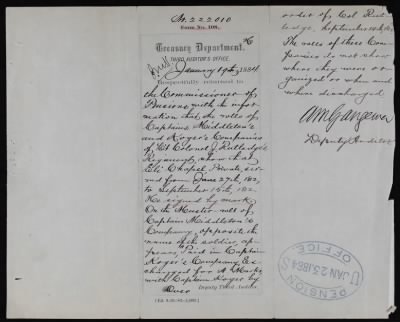 No. 222010
Form No. 108.
Treasury Department,
THIRD AUDITOR'S OFFICE,
January 19th, 1884
Respectfully returned to
the Commissioner of
Pensions with the infor-
mation that the rolls of
Captains Middleton's
and Roger's Companies
of Lt Colonel J. Rutledge's
Regiment, show that
Eli Chapel, Private, ser-
ved from June 27th, 181
to September 15th, 181
He signed by mark
On the Muster roll of
Captain Middleton's
Company, opposite the
name of the soldier, ap-
pears, "Paid in Captain
Roger's Company Ex-
changed for
with Captain Roger by
Over
Deputy Third Auditor
order of Col Rut-
ledge, September 14th,
The rolls of these Com-
panies do not show
where they were or-
ganized or when and
where discharged
Deputy Auditor
U.S. PENSION OFFICE
JAN 23 1884